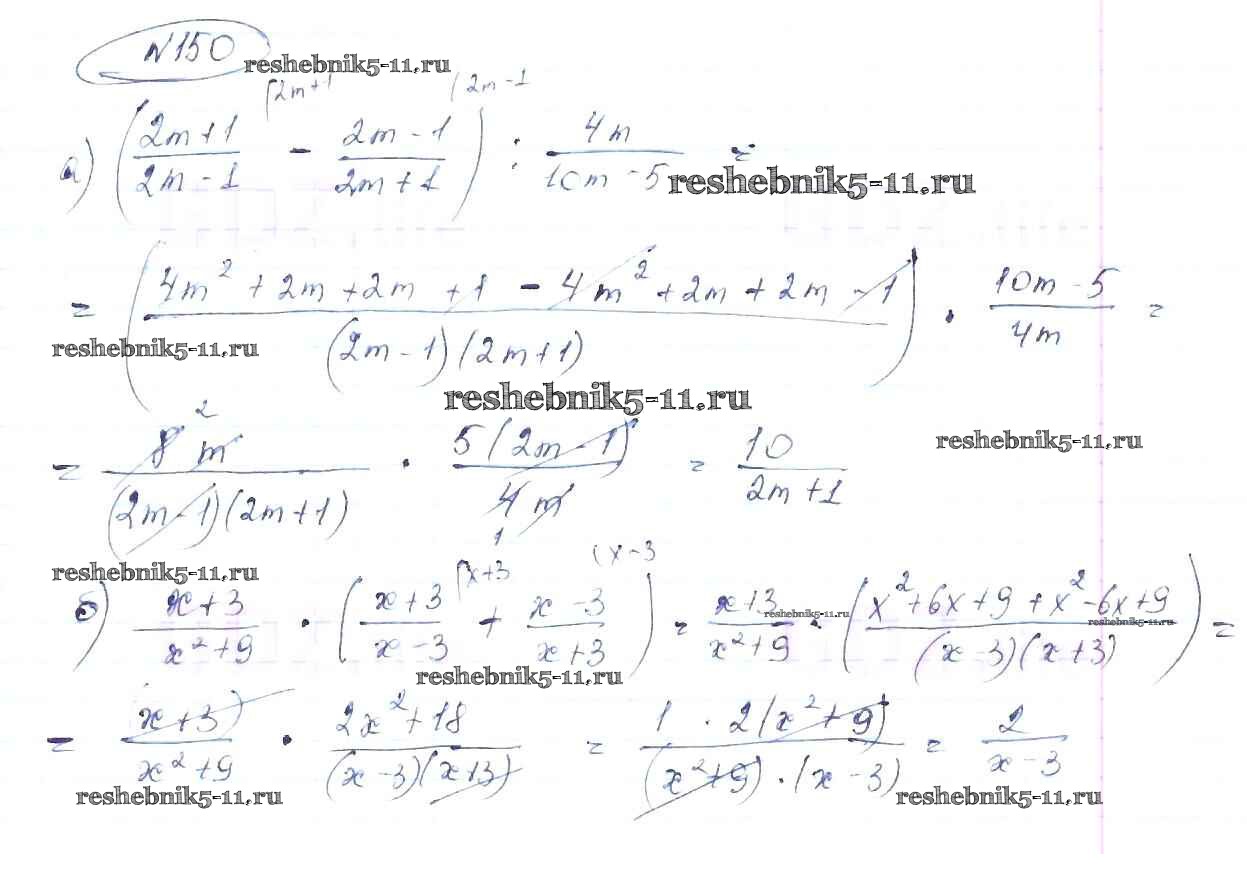 N150
reshebnik5-11.ru
(2m+1 (2m-1
а) ((2m+1)/(2m-1) - (2m-1)/(2m+1)) : 4m/(10m-5) =
reshebnik5-11.ru
= ((4m² + 2m + 2m + 1 - 4m² + 2m + 2m - 1)/((2m-1)(2m+1))) · (10m-5)/4m =
reshebnik5-11.ru
reshebnik5-11.ru
reshebnik5-11.ru
2
= 8m/((2m-1)(2m+1)) · 5(2m-1)/4m = 10/(2m+1)
1
reshebnik5-11.ru
(x+3 (x-3
б) (x+3)/(x²+9) · ((x+3)/(x-3) + (x-3)/(x+3)) = (x+3)/(x²+9) · ((x²+6x+9+x²-6x+9)/((x-3)(x+3))) =
reshebnik5-11.ru
reshebnik5-11.ru
reshebnik5-11.ru
= (x+3)/(x²+9) · (2x²+18)/((x-3)(x+3)) = (1 · 2(x²+9))/((x²+9)·(x-3)) = 2/(x-3)
reshebnik5-11.ru
reshebnik5-11.ru